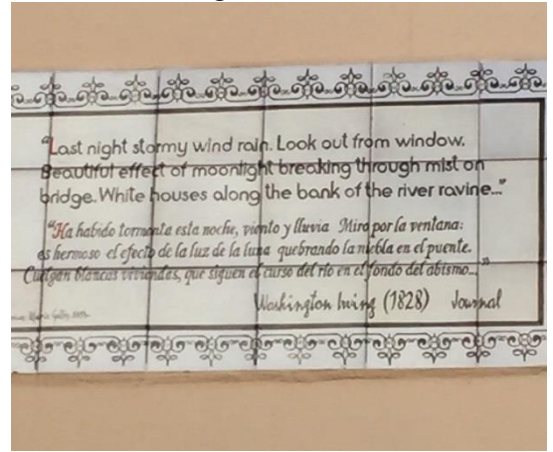 "Last night stormy wind rain. Look out from window.
Beautiful effect of moonlight breaking through mist on
bridge. White houses along the bank of the river ravine..."
"Ha habido tormenta esta noche, viento y lluvia Miro por la ventana:
es hermoso el efecto de la luz de la luna quebrando la niebla en el puente.
Cuelgan blancas viviendas, que siguen el curso del río en el fondo del abismo..."
Washington Irving (1828) Journal